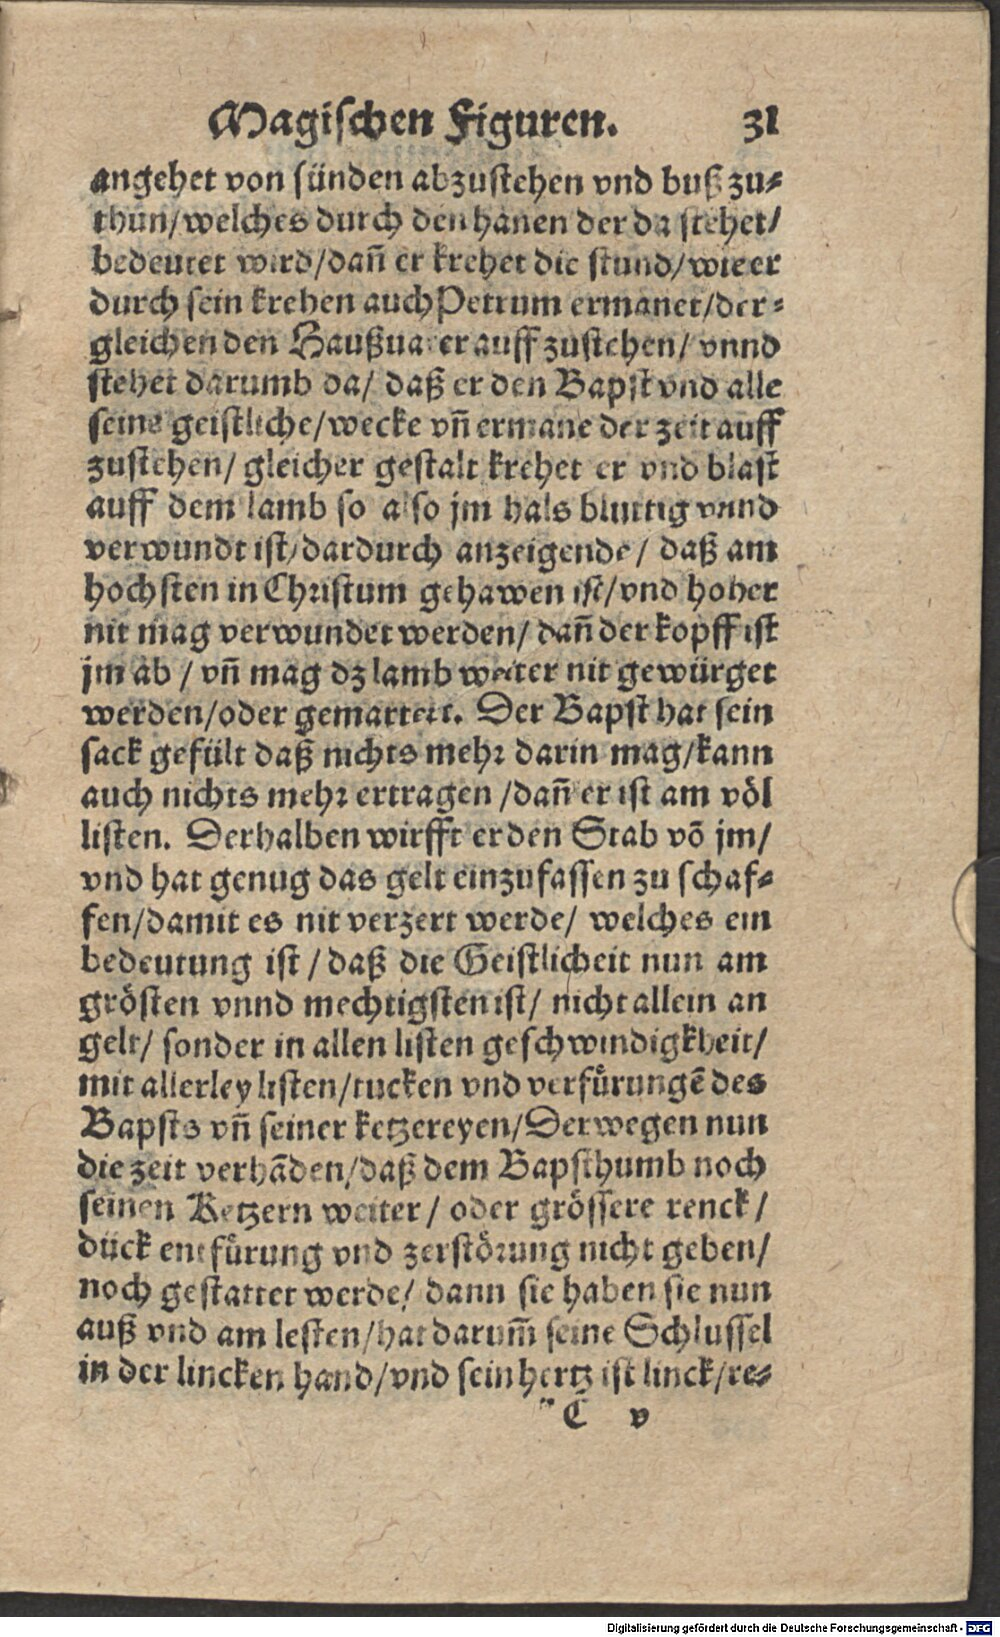 Magischen Figuren. 31
angehet von sünden abzustehen vnd buß zu⸗
thun/welches durch den hanen der da stehet/
bedeutet wird/dañ er krehet die stund/wie er
durch sein krehen auch Petrum ermanet/der⸗
gleichen den Haußuater auff zustehen/ vnnd
stehet darumb da/ daß er den Bapst vnd alle
seine geistliche/wecke vñ ermane der zeit auff
zustehen/ gleicher gestalt krehet er vnd blast
auff dem lamb so also jm hals bluttig vnnd
verwundt ist/dardurch anzeigende/ daß am
hochsten in Christum gehawen ist/vnd hoher
nit mag verwundet werden/ dañ der kopff ist
jm ab / vñ mag dz lamb weiter nit gewürget
werden/oder gemartert. Der Bapst hat sein
sack gefült daß nichts mehr darin mag/kann
auch nichts mehr ertragen /dañ er ist am völ
listen. Derhalben wirfft er den Stab võ jm/
vnd hat genug das gelt einzufassen zu schaf⸗
fen/damit es nit verzert werde/ welches ein
bedeutung ist / daß die Geistlicheit nun am
grösten vnnd mechtigsten ist/ nicht allein an
gelt/ sonder in allen listen geschwindigkheit/
mit allerley listen/tucken vnd verfůrungẽ des
Bapsts vñ seiner ketzereyen/Derwegen nun
die zeit verhãden/daß dem Bapsthumb noch
seinen Ketzern weiter / oder grössere renck /
dück entfůrung vnd zerstörung nicht geben/
noch gestattet werde/ dann sie haben sie nun
auß vnd am lesten/hat darum̃ seine Schlussel
in der lincken hand/vnd sein hertz ist linck/re⸗
C v
Digitalisierung gefördert durch die Deutsche Forschungsgemeinschaft - DFG